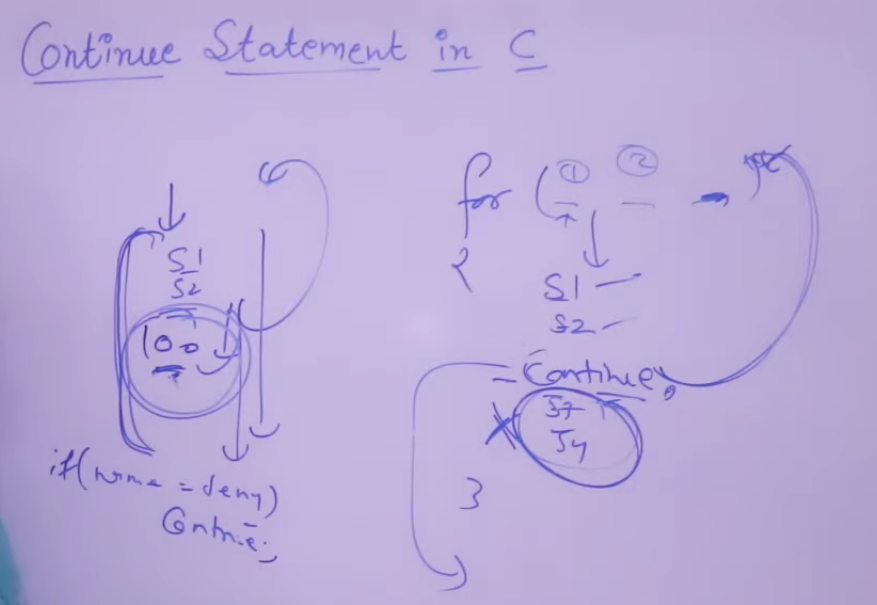 Continue Statement in C
S1
S2
100
if(
Contnue;
for ( ① ②
{
S1
S2
Continue;
S3
S4
}